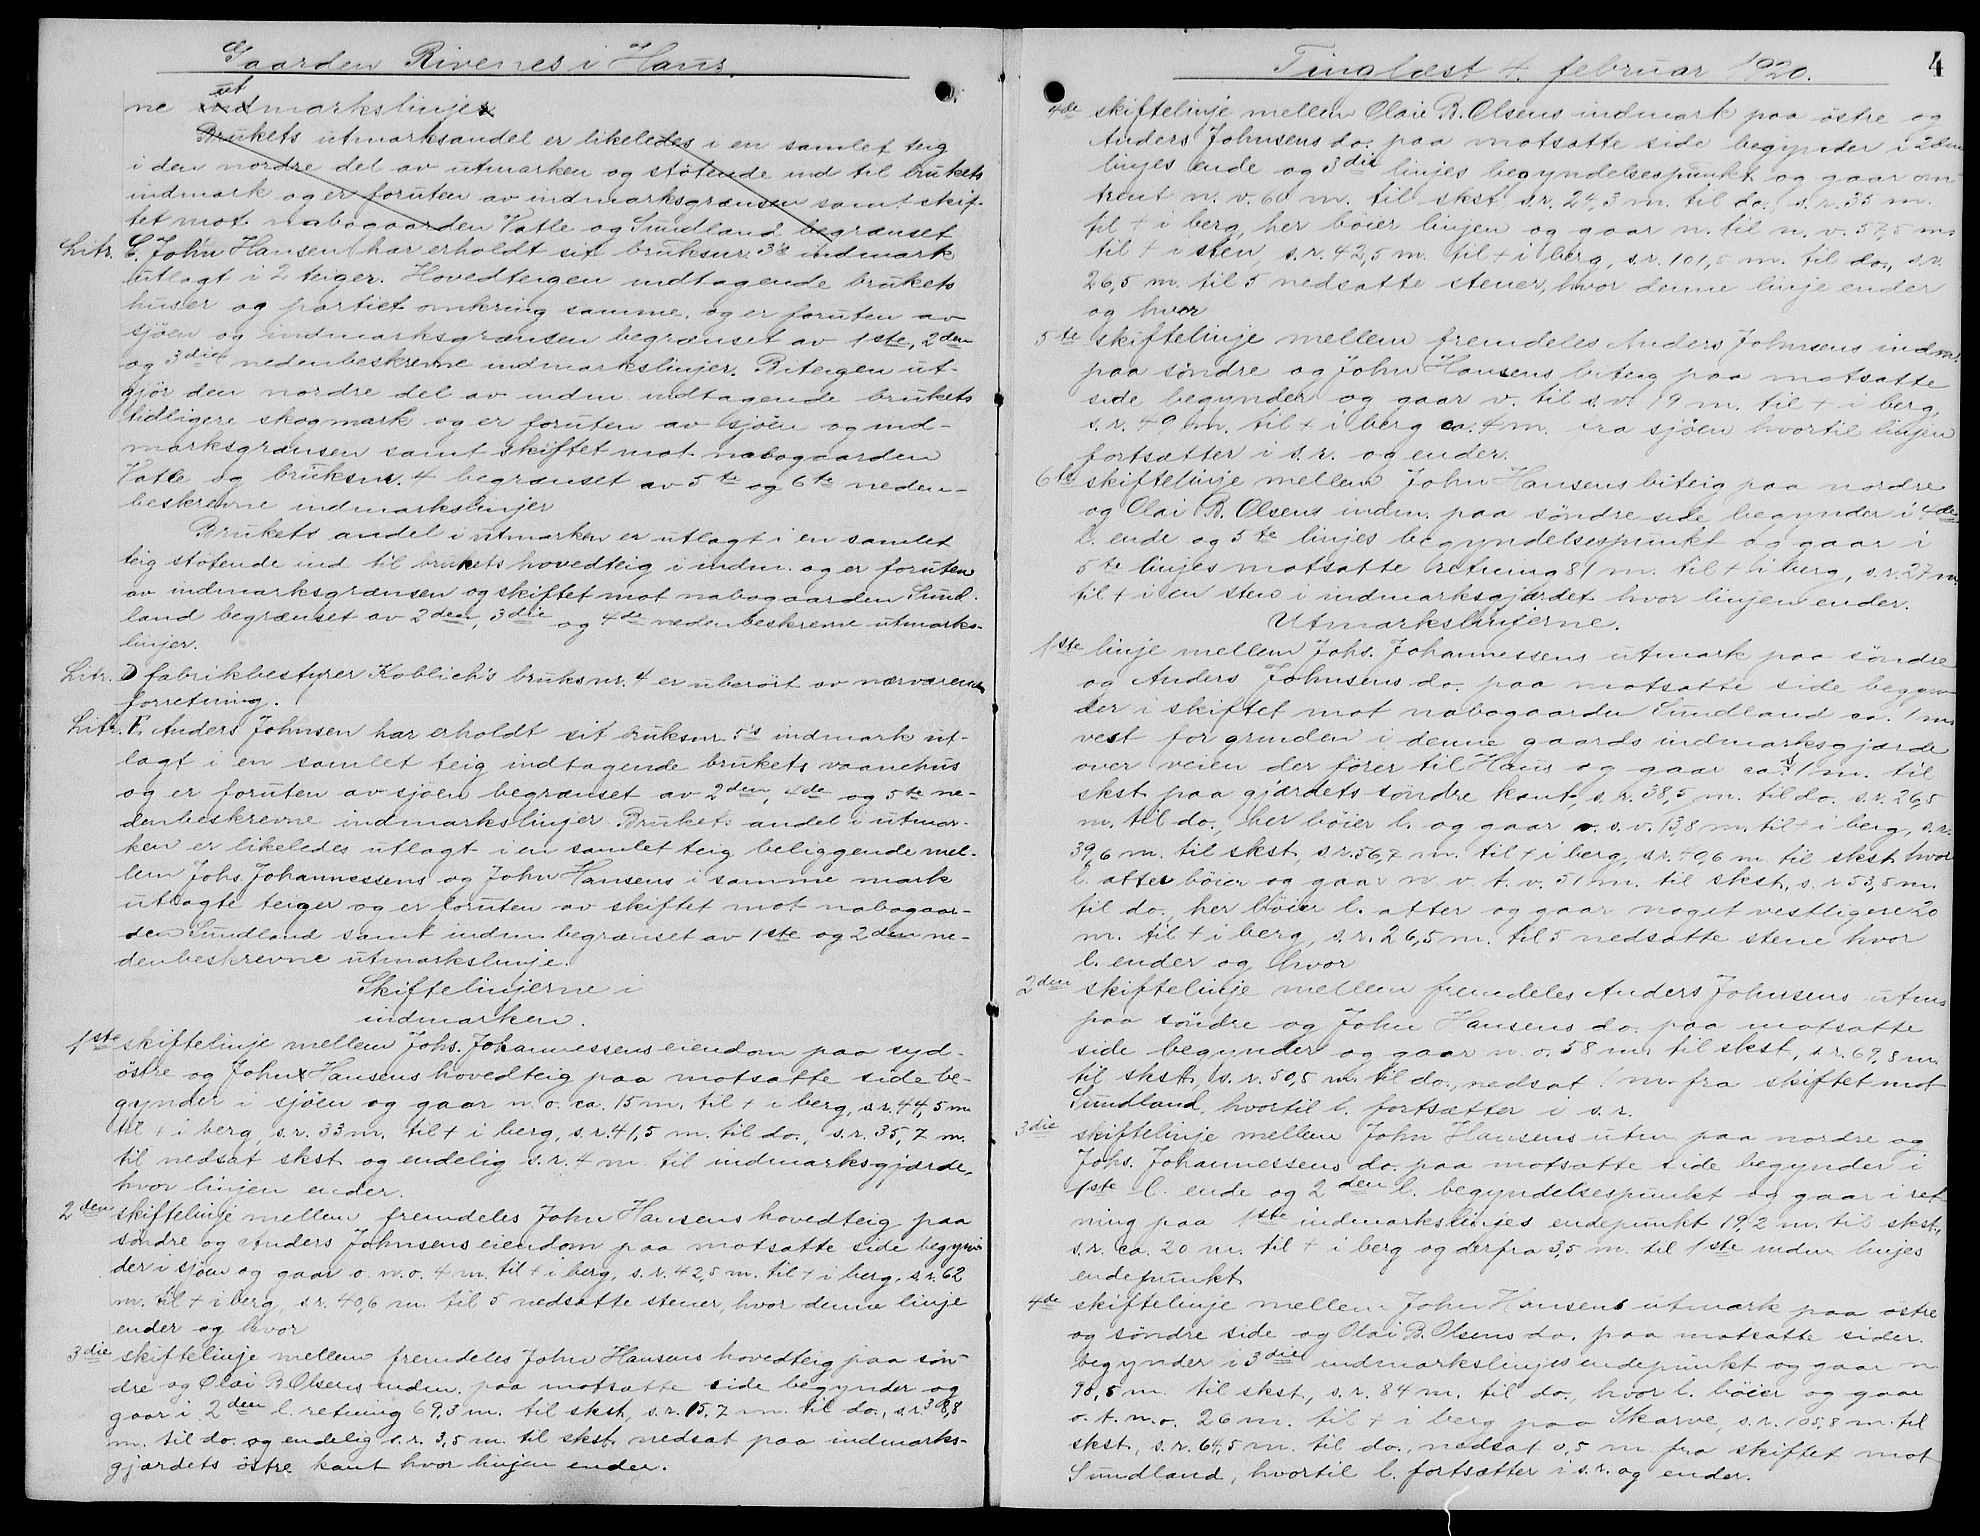 Gaarden Rivenes i Haus.
ne utmarkslinjer
Brukets utmarksandel er likeledes i en samlet teig
i den nordre del av utmarken og stötende ind til brukets
indmark og er foruten av indmarksgrænsen samt skif-
tet mot nabogaarden Vatle og Sundland begrænset
Litr. C. John Hansen har erholdt sit bruksnr. 3's indmark
utlagt i 2 teiger. Hovedteigen indtagende brukets
huser og partiet omkring samme, og er foruten av
sjöen og indmarksgrænsen begrænset av 1ste, 2den
og 3die nedenbeskrevne indmarkslinjer. Biteigen ut-
gjör den nordre del av indm. indtagende brukets
tidligere skogmark og er foruten av sjöen og ind-
marksgrænsen samt skiftet mot nabogaarden
Vatle og bruksnr. 4 begrænset av 5te og 6te neden-
beskrevne indmarkslinjer
Brukets andel i utmarken er utlagt i en samlet
teig stötende ind til brukets hovedteig i indm. og er foruten
av indmarksgrænsen og skiftet mot nabogaarden Sund-
land begrænset av 2den, 3die og 4de nedenbeskrevne utmarks-
linjer.
Litr. D fabrikbestyrer Koblich's bruksnr. 4 er uberört av nærværende
forretning.
Litr. E. Anders Johnsen har erholdt sit bruksnr. 5's indmark ut-
lagt i en samlet teig indtagende brukets vaanehus
og er foruten av sjöen begrænset av 2den, 4de og 5te ne-
denbeskrevne indmarkslinjer. Brukets andel i utmar-
ken er likeledes utlagt i en samlet teig beliggende mel-
lem Johs. Johannessens og John Hansens i samme mark
utlagte teiger og er foruten av skiftet mot nabogaar-
den Sundland samt indm. begrænset av 1ste og 2den ne-
denbeskrevne utmarkslinje.
Skiftelinjerne i
indmarken.
1ste skiftelinje mellem Johs. Johannessens eiendom paa syd-
östre og John Hansens hovedteig paa motsatte side be-
gynder i sjöen og gaar n. o. ca. 15 m. til + i berg, s.r. 44,5 m
til + i berg, s.r. 33 m. til + i berg, s.r. 41,5 m. til do., s.r. 35,7 m.
til nedsat skst og endelig s.r. 4 m. til indmarksgjærde,
hvor linjen ender.
2den skiftelinje mellem fremdeles John Hansens hovedteig paa
söndre og Anders Johnsens eiendom paa motsatte side begyn-
der i sjöen og gaar o. n. o. 4 m. til + i berg, s.r. 42,5 m. til + i berg, s.r. 62
m. til + i berg, s.r. 40,6 m. til 5 nedsatte stener, hvor denne linje
ender og hvor
3die skiftelinje mellem fremdeles John Hansens hovedteig paa sön-
dre og Olai B. Olsens indm. paa motsatte side begynder og
gaar i 2den l. retning 69,3 m. til skst, s.r. 15,7 m. til do., s.r. 38,8
m. til do. og endelig s.r. 3,5 m. til skst. nedsat paa indmarks-
gjærdets östre kant hvor linjen ender.
Tinglæst 4. februar 1920.
4
4de skiftelinje mellem Olai B. Olsens indmark paa östre og
Anders Johnsens do. paa motsatte side begynder i 2den
linjes ende og 3die linjes begyndelsespunkt og gaar om-
trent n. v. 60 m. til skst, s.r. 24,3 m. til do., s.r. 35 m.
til + i berg, her böier linjen og gaar n. til n. v. 57,5 m.
til + i sten, s.r. 42,5 m. til + i berg, s.r. 101,5 m. til do., s.v.
26,5 m. til 5 nedsatte stener, hvor denne linje ender
og hvor
5te skiftelinje mellem fremdeles Anders Johnsens indm.
paa söndre og John Hansens biteig paa motsatte
side begynder og gaar v. til s.v. 19 m. til + i berg,
s.r. 49 m. til + i berg ca. 4 m. fra sjöen hvortil linjen
fortsætter i s.r. og ender.
6te skiftelinje mellem John Hansens biteig paa nordre
og Olai B. Olsens indm. paa söndre side begynder i 4de
l. ende og 5te linjes begyndelsespunkt og gaar i
5te linjes motsatte retning 81 m. til + i berg, s.r. 27 m.
til + i en sten i indmarksgjærdet hvor linjen ender.
Utmarkslinjerne.
1ste linje mellem Johs. Johannessens utmark paa söndre
og Anders Johnsens do. paa motsatte side begyn-
der i skiftet mot nabogaarden Sundland ca. 1 m.
vest for grinden i denne gaards indmarksgjærde
over veien der förer til Haus og gaar ca. 1 m. til
skst paa gjærdets söndre kant, s.r. 38,5 m. til do. s.r. 26,5
m. til do., her böier l. og gaar s.v. 13,8 m. til + i berg, s.r.
39,6 m. til skst, s.r. 56,7 m. til + i berg, s.r. 40,6 m til skst hvor
l. atter böier og gaar n v. t. v. 51 m. til skst, s.r 53,8 m.
til do., her böier l. atter og gaar noget vestligere 20
m. til + i berg, s.r. 26,5 m. til 5 nedsatte stene hvor
l. ender og hvor
2den skiftelinje mellem fremdeles Anders Johnsens utm.
paa söndre og John Hansens do. paa motsatte
side begynder og gaar n. o. 58 m. til skst, s.r. 69,8 m.
til skst, s.r. 50,5 m. til do., nedsat 1 m. fra skiftet mot
Sundland, hvortil l. fortsætter i s.r.
3die skiftelinje mellem John Hansens utm. paa nordre og
Johs. Johannessens do. paa motsatte side begynder i
1ste l. ende og 2den l. begyndelsespunkt og gaar i ret-
ning paa 1ste indmarkslinjes endepunkt 19,2 m. til skst.,
s.r. ca. 20 m. til + i berg og derfra 3,5 m. til 1ste indm. linjes
endepunkt
4de skiftelinje mellem John Hansens utmark paa östre
og söndre side og Olai B. Olsens do. paa motsatte sider.
begynder i 3die indmarkslinjes endepunkt og gaar n
90,5 m. til skst, s.r. 84 m. til do., hvor l. böier og gaar
o. t. n. o. 26 m. til + i berg paa Skarve, s.r. 105,8 m. til
skst, s.r. 64,5 m. til do., nedsat 0,5 m. fra skiftet mot
Sundland, hvortil l. fortsætter i s.r. og ender.